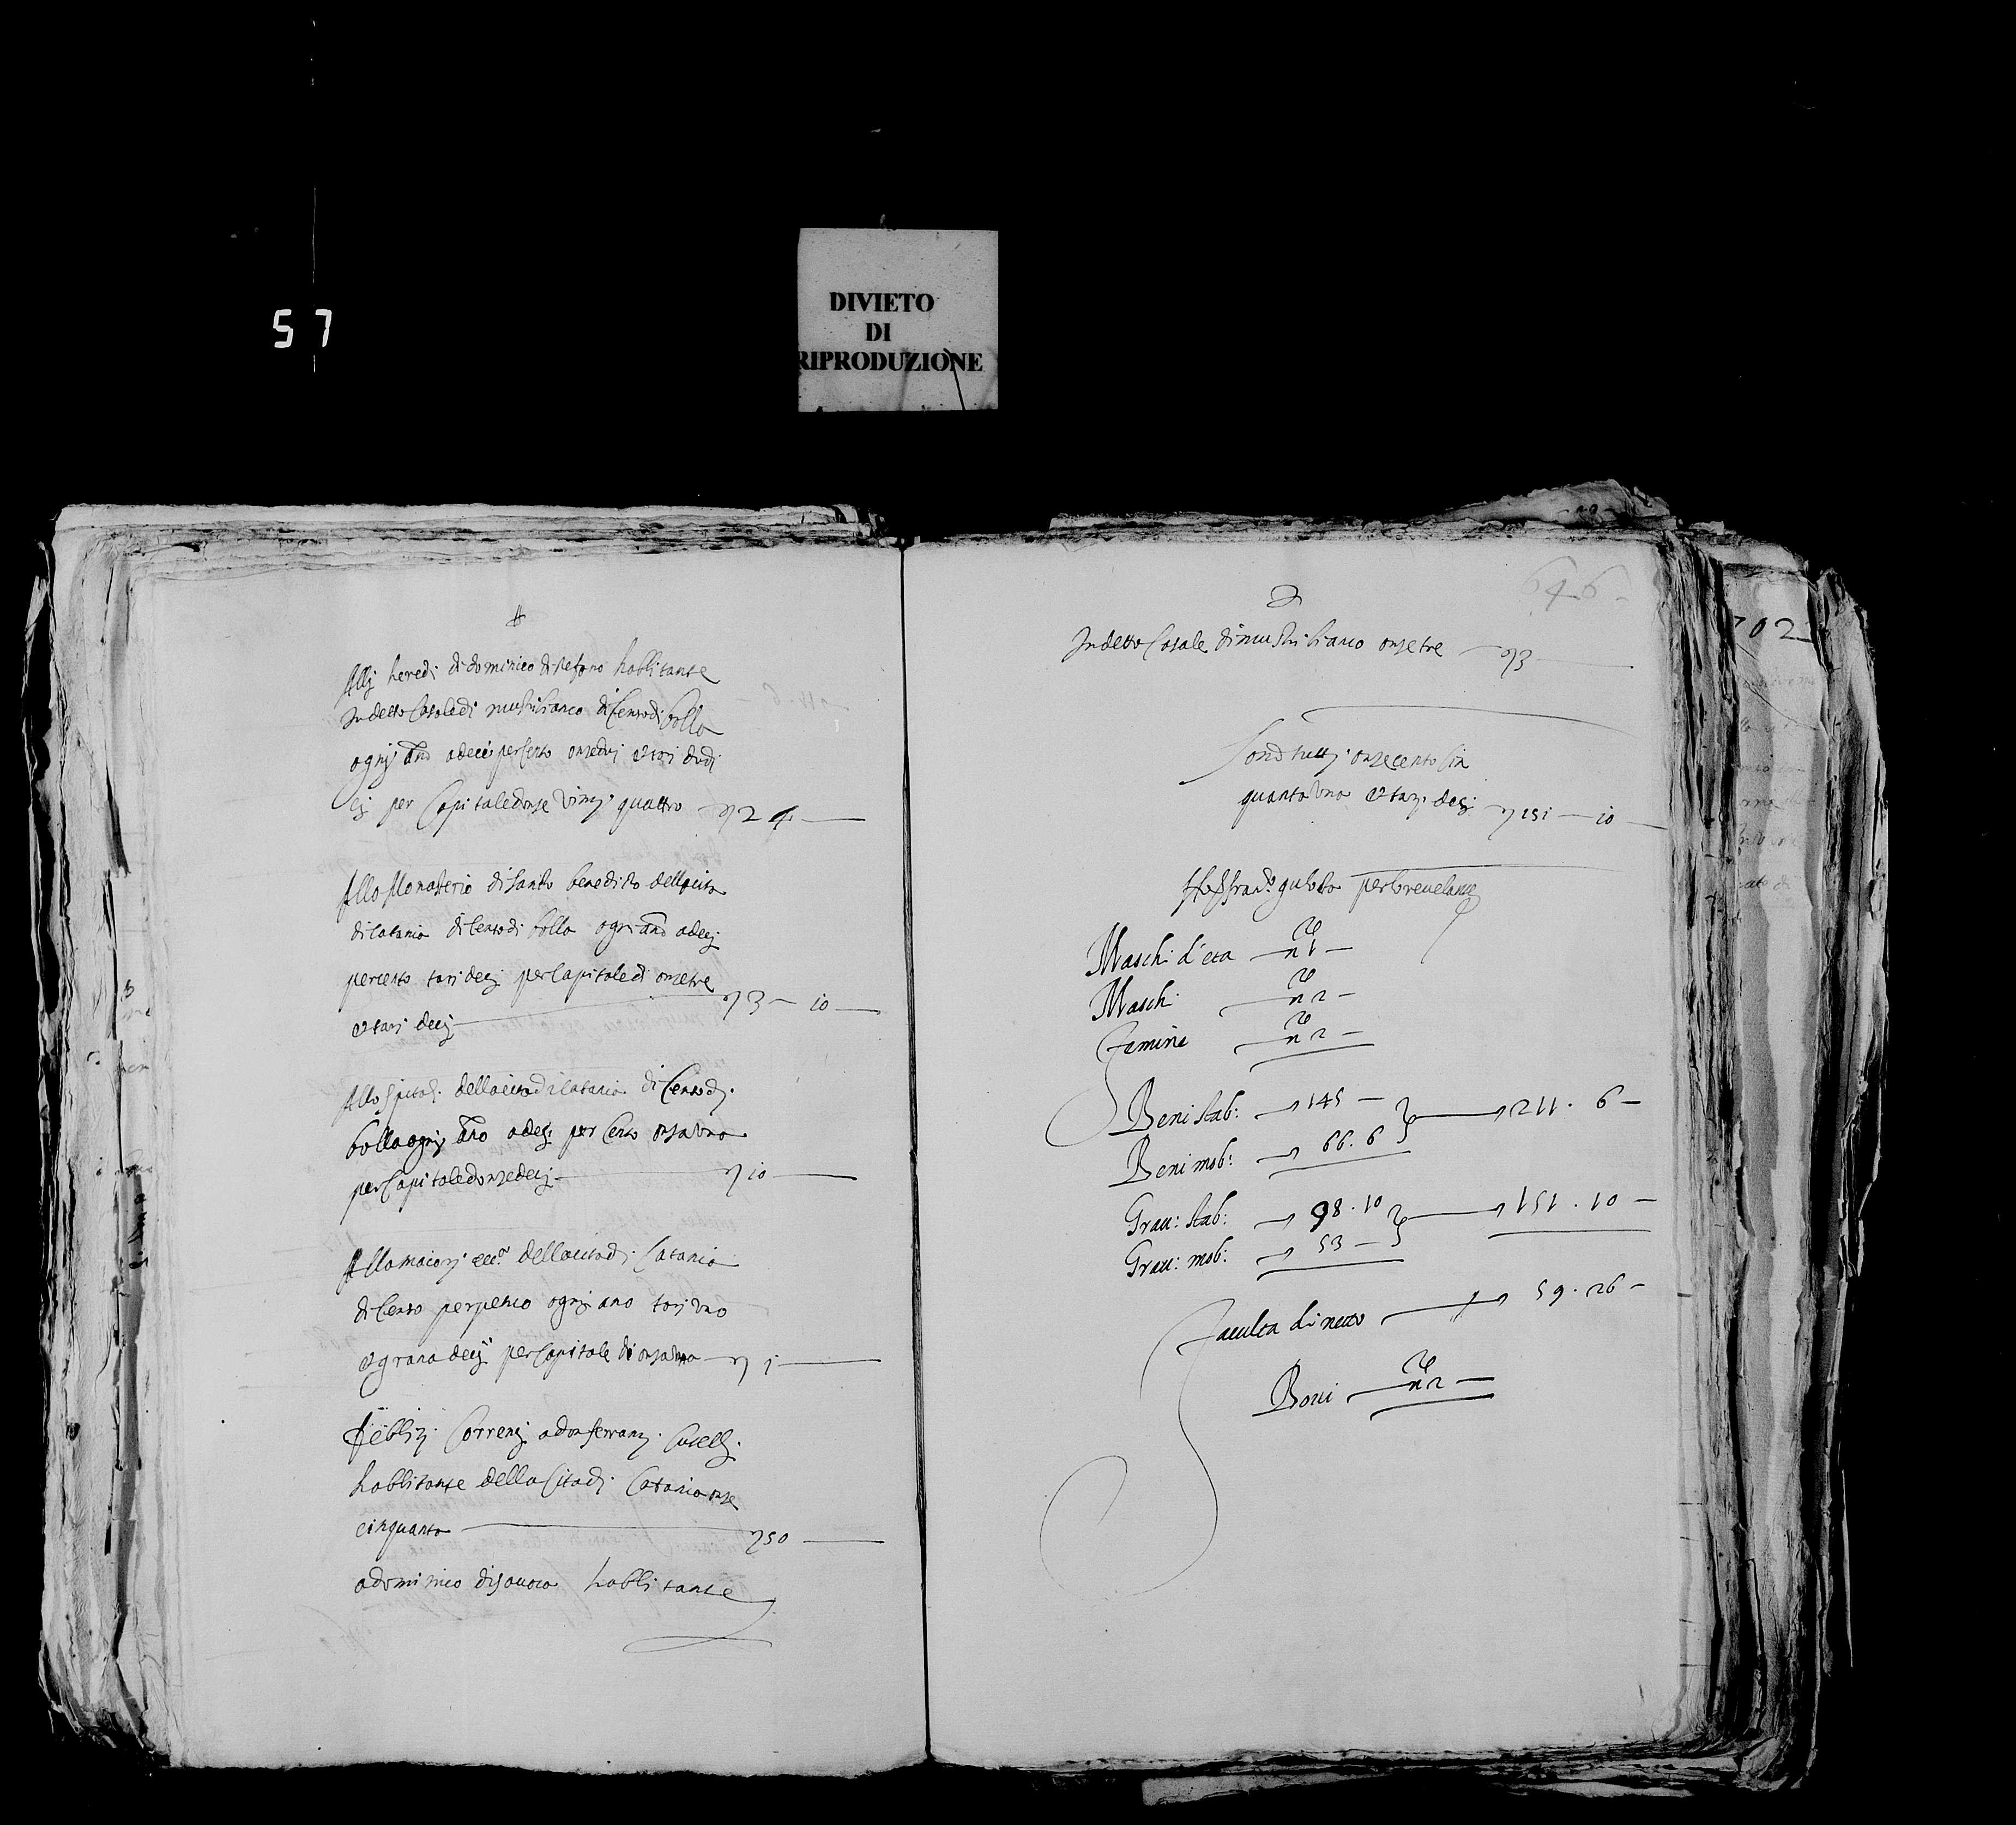 57
DIVIETO
DI
RIPRODUZIONE
Allj heredi di dominico di stefano habbitante
In detto Casale di di Censo di bolla
ogni anno a deci per cento onze dui et tari dudi
ci per Capitale d onze vinti quattro 24
Allo Monasterio di santo beneditto della cita
di catania di Censo di bolla ogni anno a decj
per cento tari decj per Capitale di onze tre
et tari decj 3 - 10
Allo spitali della cita di catania di Censo di
bolla ogni anno a decj per Cento onza una
per Capitale d onze decj 10
Alla maiori ecc.a della cita di Catania
di Censo perpetuo ogni ano tari uno
et grana decj per Capitale di onza una 1
Debbiti Correnti a don ferranti
habbitante della Cita di Catania onze
cinquanta 50
a dominico habbitante
646
702
In detto Casale di onze tre 3
Sono tutti onze cento cin
quanta una et tari decj 151 - 10
per lo revelante
Maschi d'eta n.o 1 -
Maschi n.o 2 -
Femine n.o 2 -
Beni stab: 145 - 211. 6 -
Beni mob: 66. 6
Grau: stab: 98. 10 151. 10 -
Grau: mob: 53 -
Faculta di netto 59. 26 -
Boui n.o 2 -